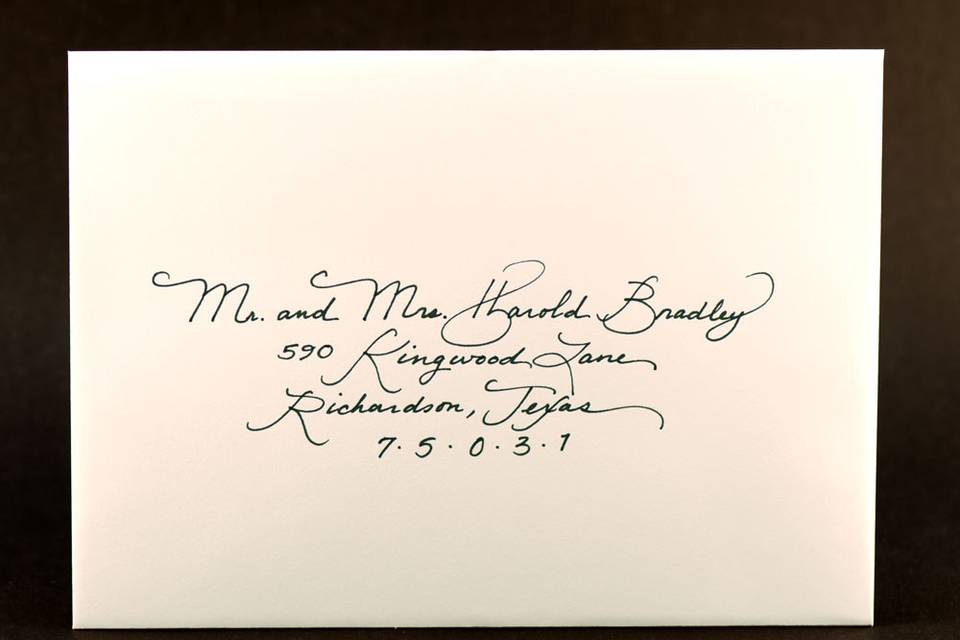 Mr. and Mrs. Harold Bradley
590 Kingwood Lane
Richardson, Texas
7·5·0·3·1